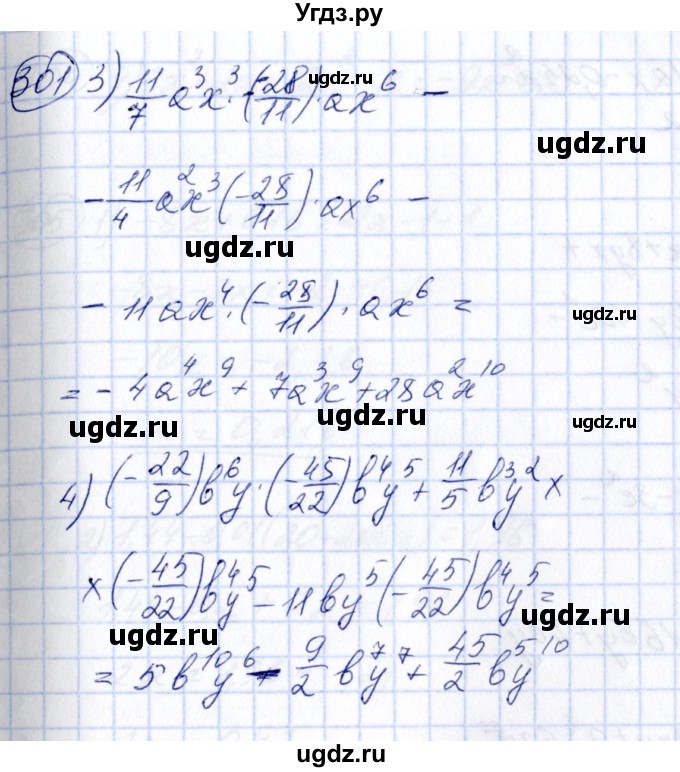 Угдз.ру
301 3) 11/7 a³x³ · (-28/11) · ax⁶ -
ugdz.ru
ugdz.ru
- 11/4 a²x³ (-28/11) · ax⁶ -
ugdz.ru
- 11ax⁴ · (-28/11) · ax⁶ =
ugdz.ru
= - 4a⁴x⁹ + 7a³x⁹ + 28a²x¹⁰
ugdz.ru ugdz.ru ugdz.ru
4) (-22/9)b⁶y · (-45/22)b⁴y⁵ + 11/5 b³y² x
x (-45/22)b⁴y⁵ - 11by⁵ (-45/22)b⁴y⁵ =
ugdz.ru ugdz.ru
= 5b¹⁰y⁶ - 9/2 b⁷y⁷ + 45/2 b⁵y¹⁰
ugdz.ru
ugdz.ru